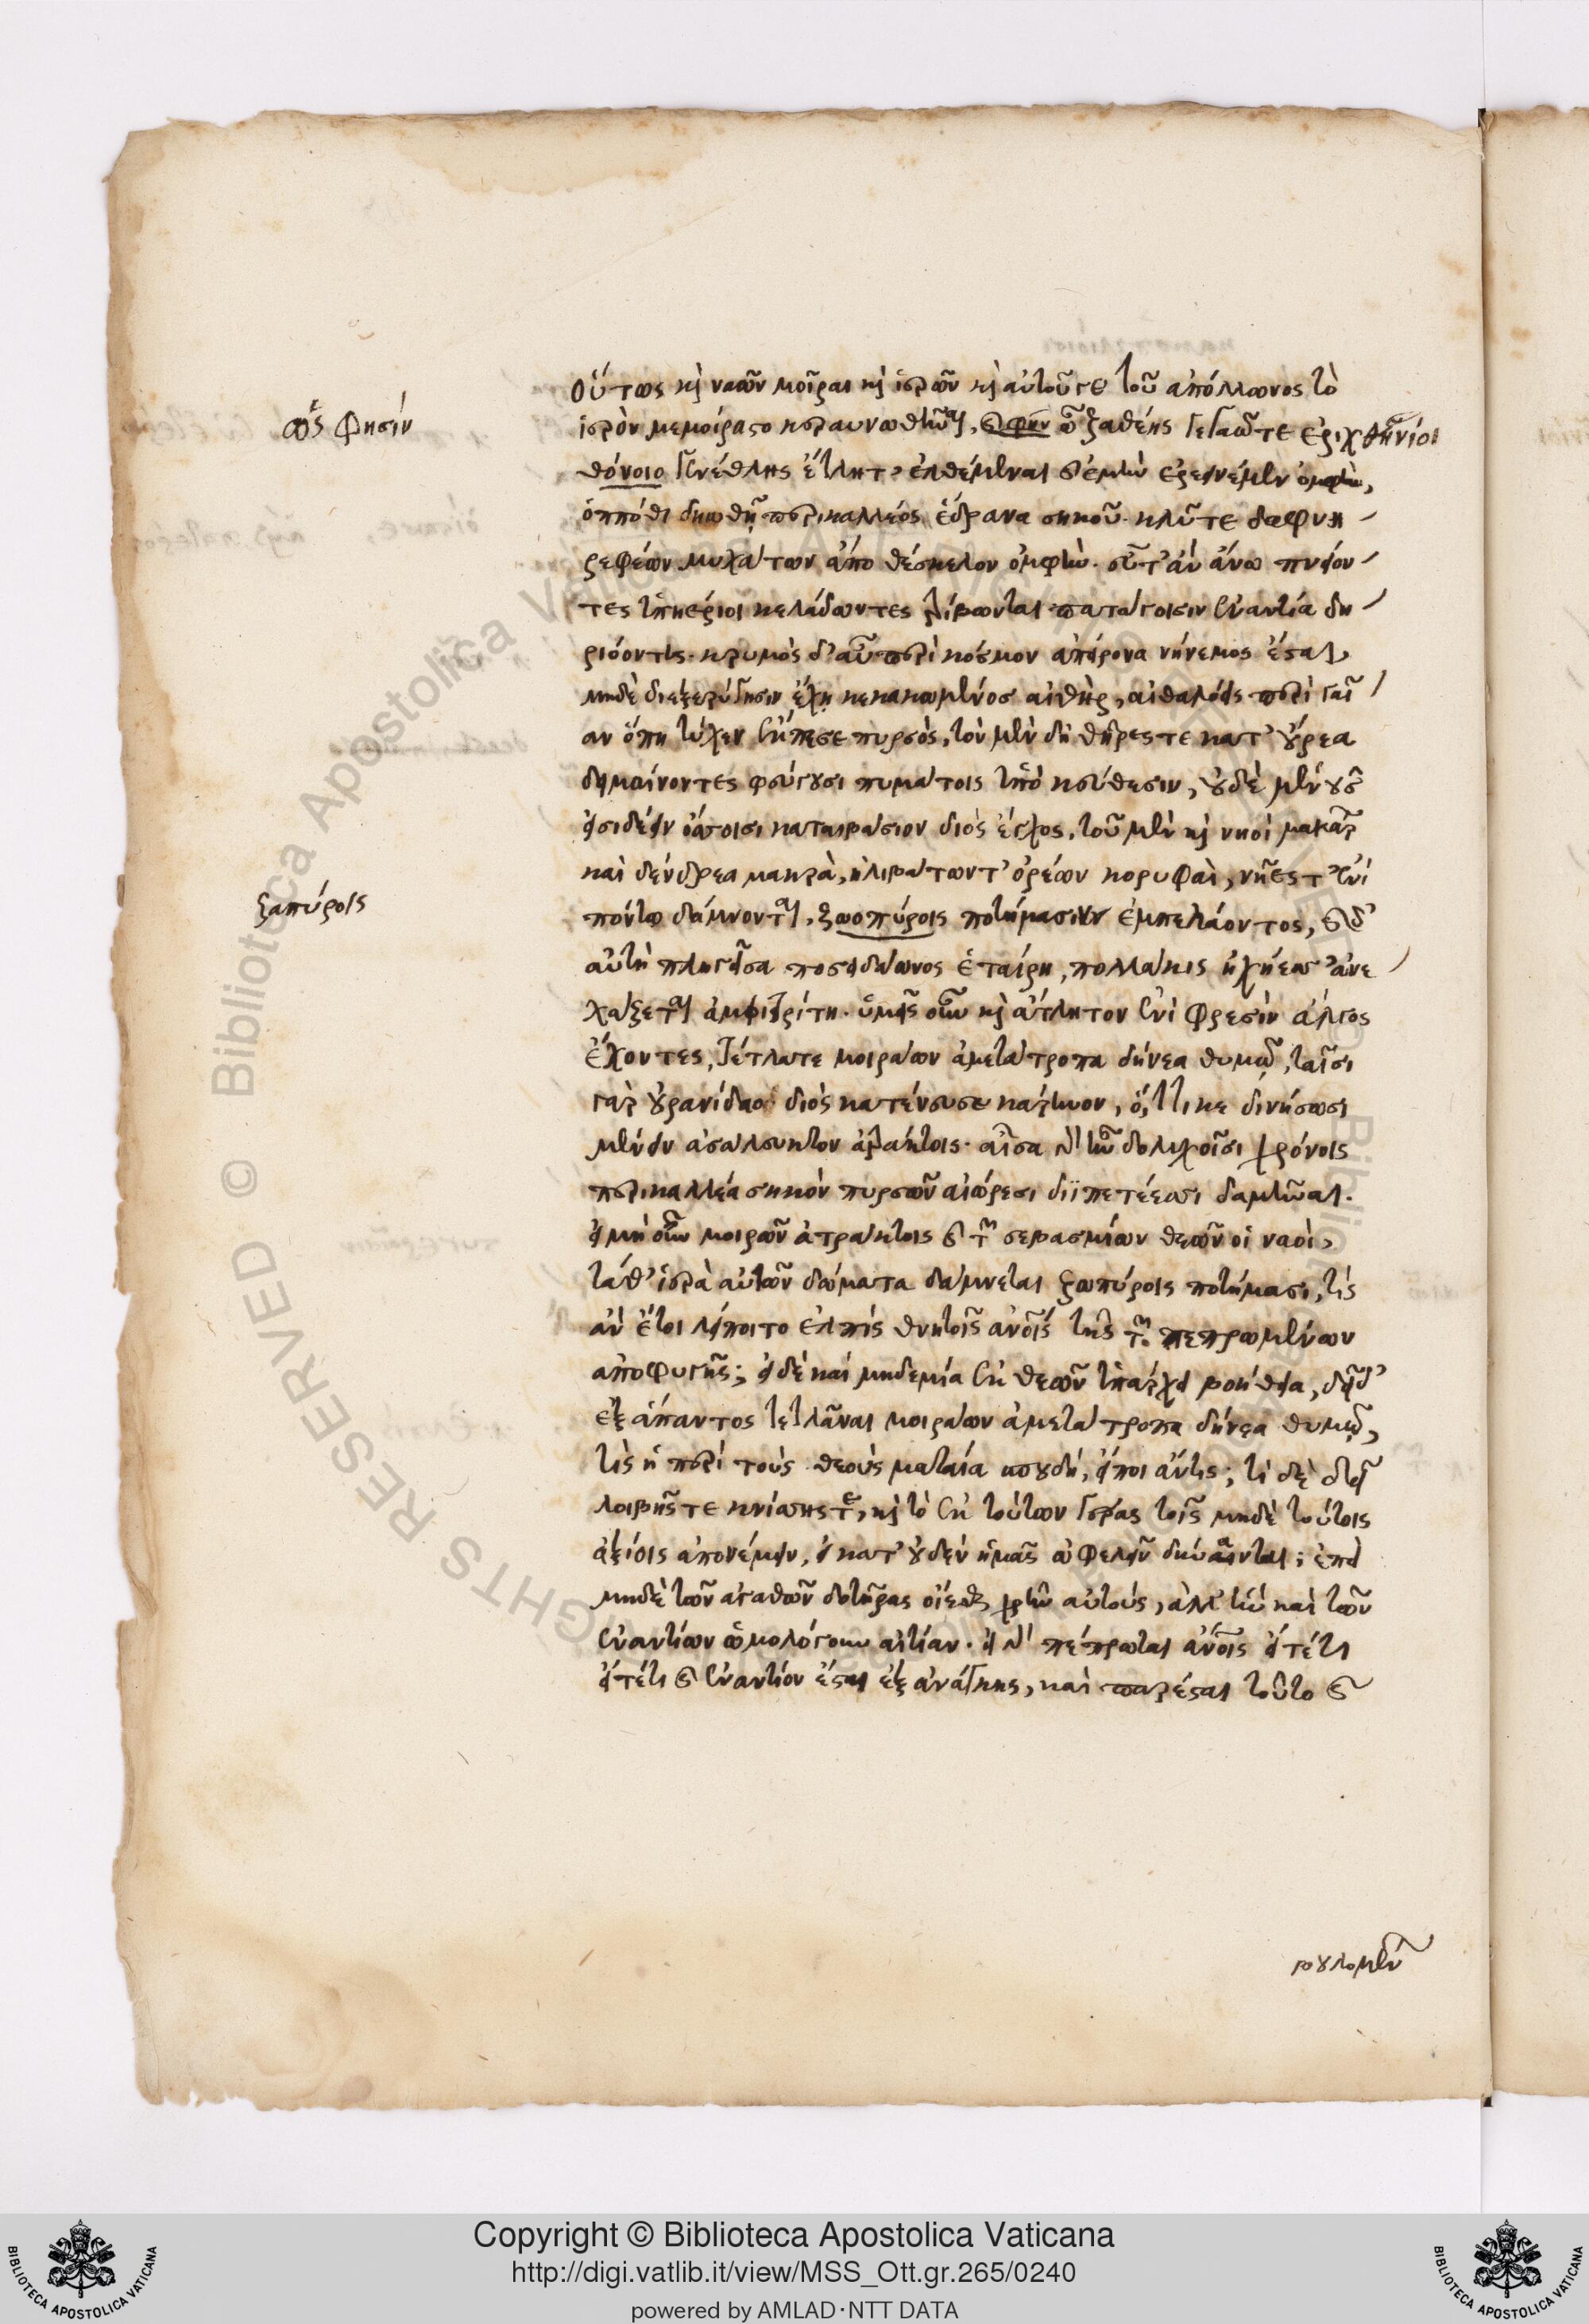 Οὕτως κὶ ναῶν μοῖραι κὶ ἱερῶν κὶ αὐτοῦ γε τοῦ ἀπόλλωνος τὸ
ὥς φησίν
ἱερὸν μεμοίραστο κεραυνωθῆναι, ὦ ζαθέης γεγαῶτε ἐριχθονίοι
θόνοιο γενέθλης ἔτλητ' ἐλθέμεναι ἐμὴν ἐρεεινέμεν ὀμφὴν,
ὁππόθι δηωθῆ περικαλλέος ἕδρανα σηκοῦ. κλῦτε δαφνη
ρεφέων μυχάτων ἄπο θέσκελον ὀμφὴν. εὖτ' ἂν ἄνω πνείον
τες ὑπηέριοι κελάδοντες θλίβωνται πατάγοισιν ἐναντία δη
ριόοντες. κρυμὸς δ' αὖ περὶ κόσμον ἀπείρονα νήνεμος ἔσται,
μηδὲ διεξερύγησιν ἔχη κεκακωμένος αἰθὴρ, αἰθαλόεις περὶ γαῖ
αν ὅπη τύχεν ἔκπεσε πυρσὸς, τὸν μὲν δὴ θῆρές τε κατ' οὔρεα
δειμαίνοντες φεύγουσι πυμάτοις ὑπὸ κεύθεσιν, οὐδὲ μένουσ
εἰσιδέειν ὄσσοισι καταιβάσιον διὸς ἔγχος. τοῦ μὲν κὶ νηοὶ μακάρ
καὶ δένδρεα μακρὰ, ἠλιβάτων τ' ὀρέων κορυφαὶ, νῆές τ' ἐνὶ
ζαπύροις
πόντω δάμνονται, ζωοπύροις ποτήμασιν ἐμπελάοντος,
αὐτὴ πληγεῖσα ποσειδάωνος ἑταίρη, πολλάκις ἠχήεσσ' ἀνε
χάζεται ἀμφιτρίτη. ὑμεῖς οὖν κὶ ἄτλητον ἐνὶ φρεσὶν ἄλγος
ἔχοντες, τέτλατε μοιράων ἀμετάτροπα δήνεα θυμῷ, ταῖσι
γὰρ οὐρανίδαο διὸς κατένευσε κάρηνον, ὅ,ττι κε δινήσωσι
μένειν ἀσάλευτον ἀτράκτοις. αἶσα δολιχοῖσι χρόνοις
περικαλλέα σηκὸν πυρσῶν αἰώρεσι διϊπετέεσσι δαμῆναι.
εἰ μὴ οὖν μοιρῶν ἀτράκτοις τῶν σεβασμίων θεῶν οἱ ναοὶ,
τά θ' ἱερὰ αὐτῶν δώματα δάμνεται ζωπύροις ποτήμασι, τίς
ἂν ἔτι λείποιτο ἐλπὶς θνητοῖς ἀνοῖς τῆς τῶν πεπρωμένων
ἀποφυγῆς; εἰ δὲ καὶ μηδεμία ἐκ θεῶν ὑπάρχει βοήθεια, δεῖ δ'
ἐξ ἅπαντος τετλάναι μοιράων ἀμετάτροπα δήνεα θυμῷ,
τίς ἡ περὶ τοὺς θεοὺς ματαία σπουδή, εἴποι ἄν τις; τί δὲ δεῖ
λοιβῆς τε κνίσσης τε, κὶ τὸ ἐκ τούτων γέρας τοῖς μηδὲ τούτοις
ἀξίοις ἀπονέμειν, εἰ κατ' οὐδὲν ἡμᾶς ὠφελεῖν δύνανται; ἐπεὶ
μηδὲ τῶν ἀγαθῶν δοτῆρας οἴεσθαι χρῆν αὐτούς, ἀλλ' ἣν καὶ τῶν
ἐναντίων ὡμολόγουν αἰτίαν. εἰ πέπρωται ἀνοῖς εἴ τέ τι
εἴ τέ τι ἐναντίον ἔσται ἐξ ἀνάγκης, καὶ παρέσται τοῦτο
βουλομέν
Copyright © Biblioteca Apostolica Vaticana
http://digi.vatlib.it/view/MSS_Ott.gr.265/0240
powered by AMLAD·NTT DATA
BIBLIOTECA APOSTOLICA VATICANA
BIBLIOTECA APOSTOLICA VATICANA